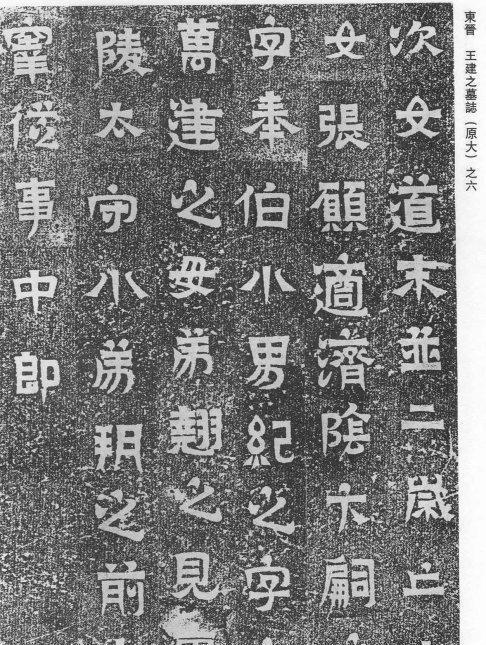 東晉　王建之墓誌（原大）之六
次女道末並二歲亡
女張願適濟陰卞嗣
字奉伯小男紀之字
萬建之母弟翹之見
陵太守小弟朔之前
宰從事中郎